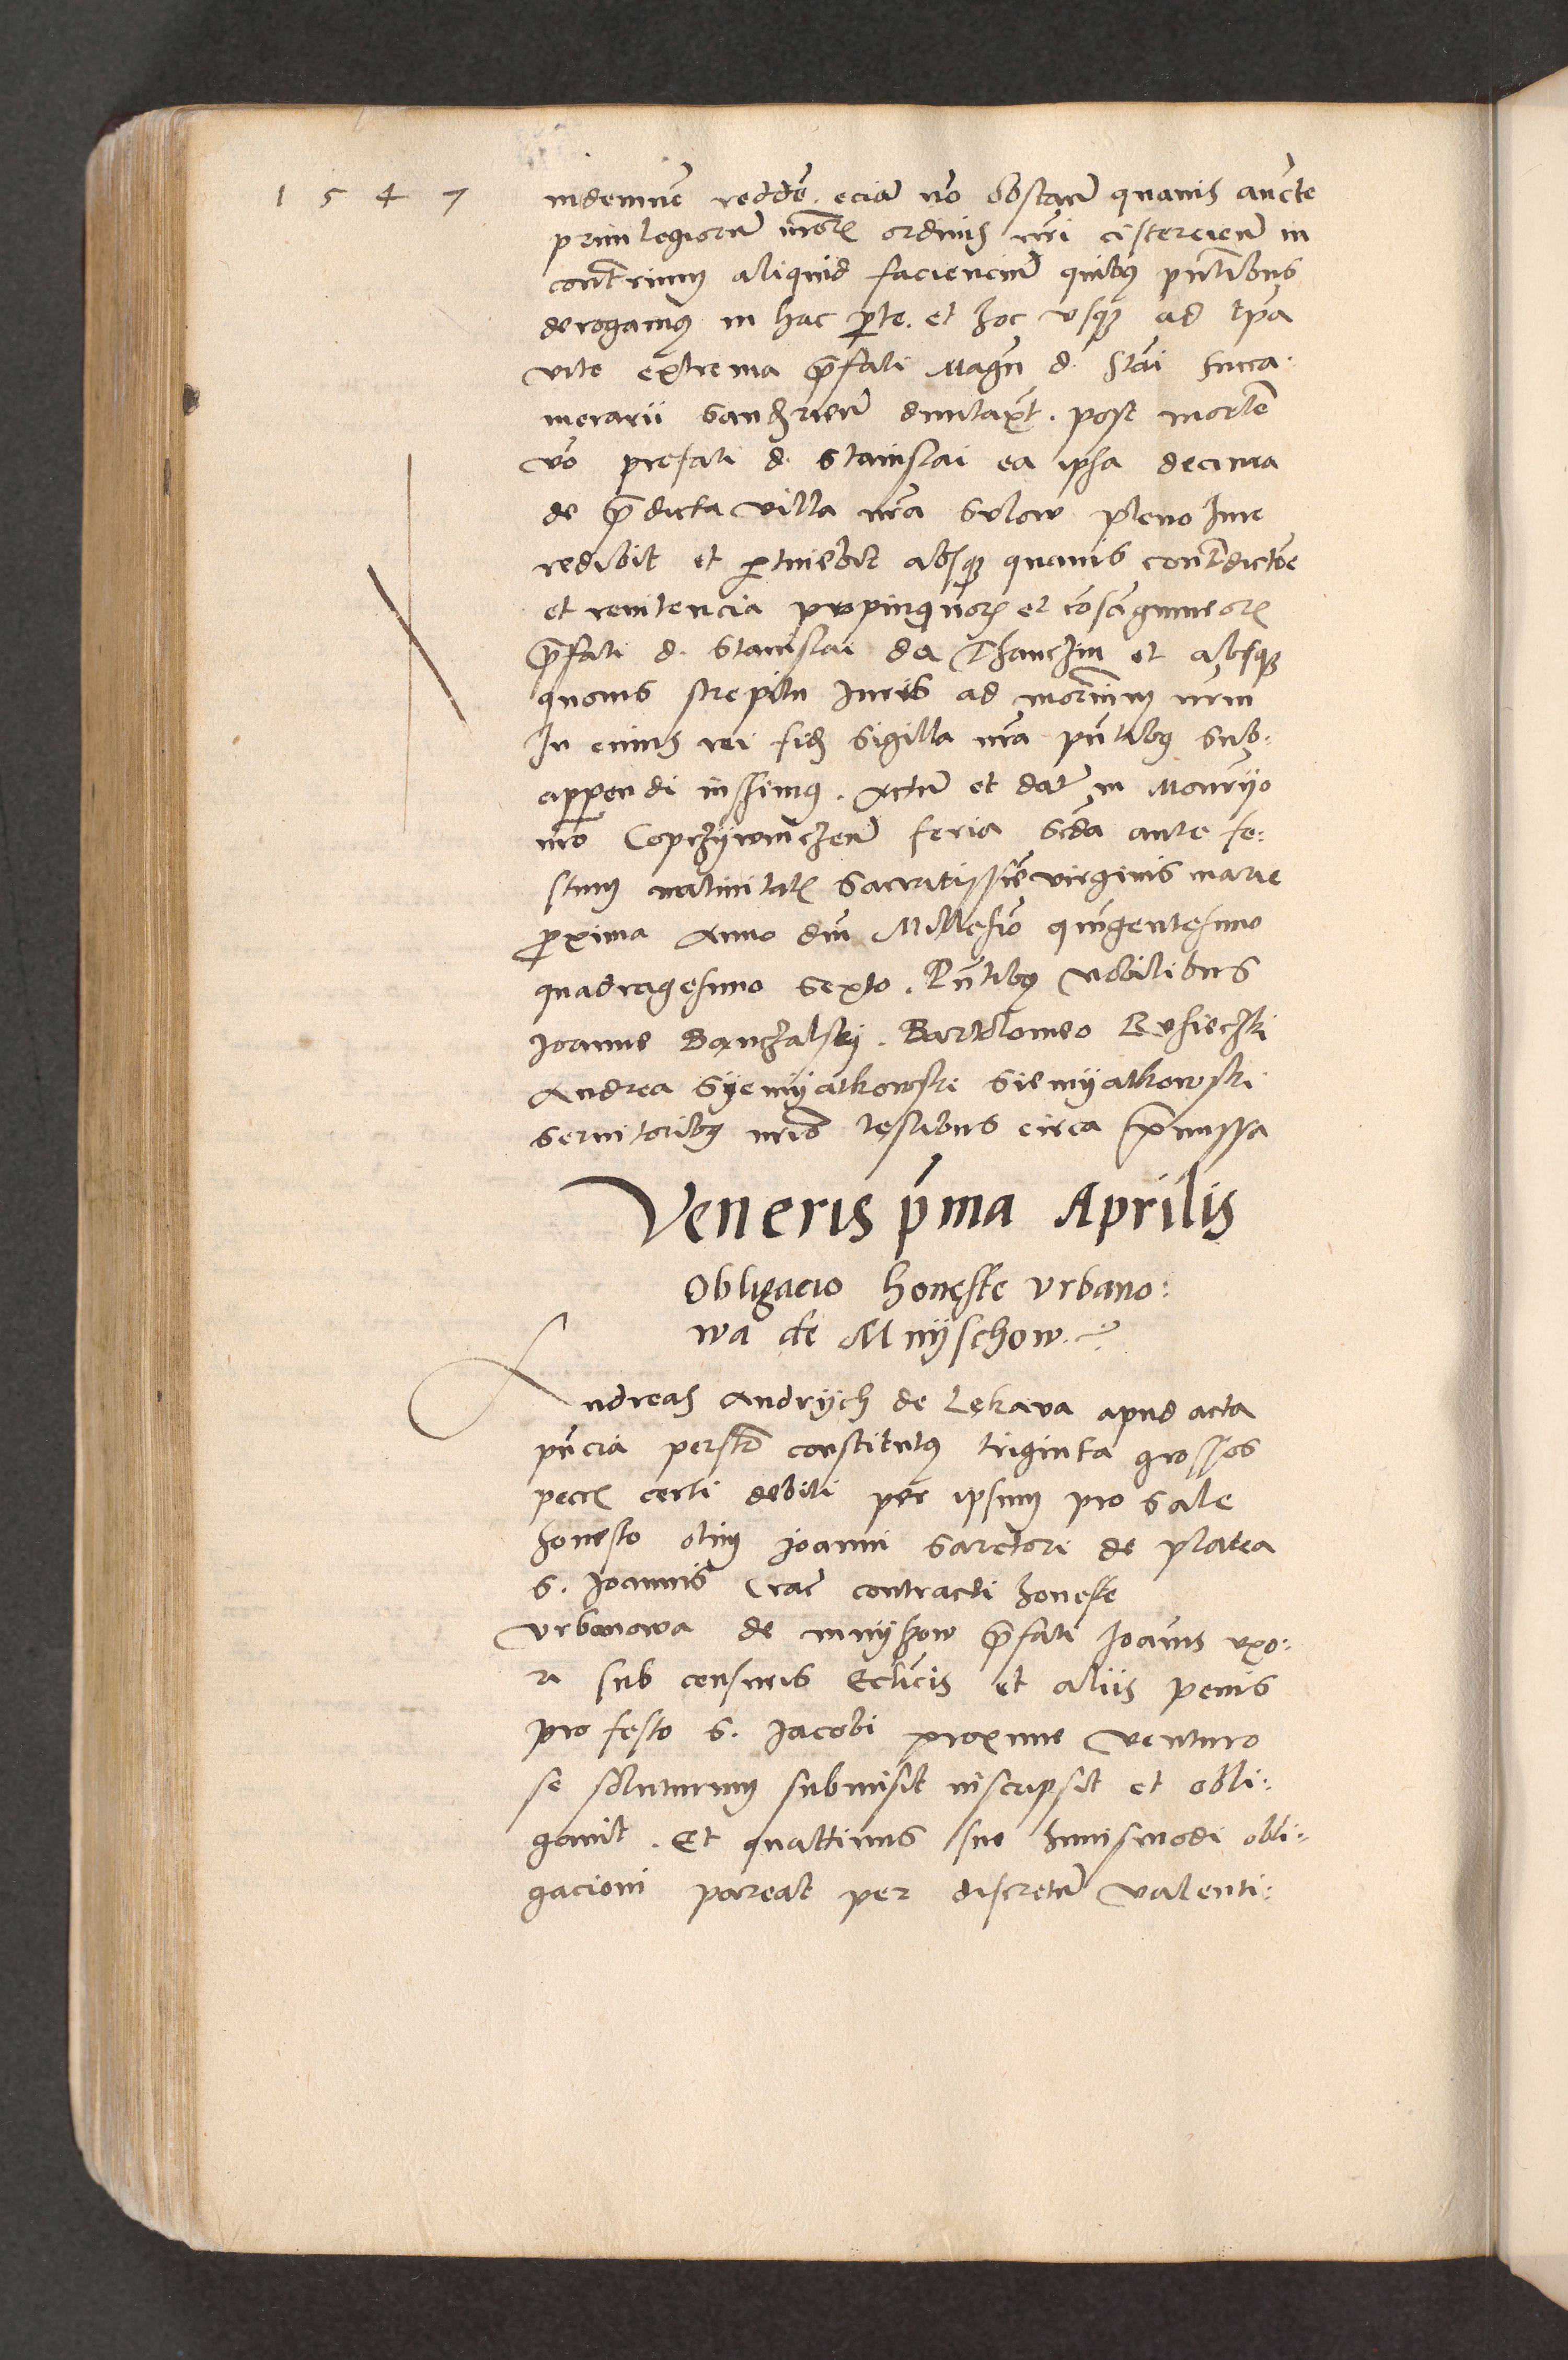 1547
indemnē reddē. eciā nō obstan̄ quauis auc̄te
priuilegiorū mōrz ordinis nr̄i cistercien̄ in
contr̄rium aliquid faciencium̄ quibus pn̄tibus
derogamus in hac pte. et hoc usque ad tpa
vite extrema p̄fati Magn̄ d. Stai succa:
merarii Sandzrien̄ dumtaxat. post mortē
vō prefati d. Stanislai ea ipsa decima
de p̄dicta villa nr̄a Sulow pleno Iure
redibit et ptinebit absque quauis contrdictōe
et renitencia propinquorz et cōsāguineorz
p̄fati d. Stanislai de Thanczin et absque
quouis strepitu Iuris ad mōrium nrm̄
In cuius rei fidē Sigilla nr̄a pn̄tibus Sub:
appendi iussimus. Actum et dat̄ in Monr̄yo
nrō Coprzywniczen̄ feria scd̄a ante fe:
stum natiuitatis Sacratissīe virginis marie
p̄xima Anno dn̄i Millesīo quīgentesimo
quadragesimo Sexto. Pn̄tibus Nobilibus
Joanne Banczalskj. Bartolomeo Lusieczki
Andrea Syemyatkowski Siemyatkowski
seruitoribus nrīs testibus circa p̄missa
Veneris p̄ma Aprilis
Obligacio honeste Vrbano:
wa de Mnyschow.
Andreas Andrych de Lękawa apud acta
pn̄cia persōr constitutus triginta grossos
pecc̄ certi debiti per ipsum pro sale
honesto olim Joanni Sarctori de platea
S. Joannis Crac̄ contracti honeste
Vrbanowa de mnyshow p̄fati Joānis vxo:
ri sub censuris Ecclīcis et aliis penis
pro festo S. Jacobi proxime venturo
se soluturum submisit inscripsit et obli:
gauit. Et quattinus sue huiusmodi obli:
gacioni pareat per discretū valenti: